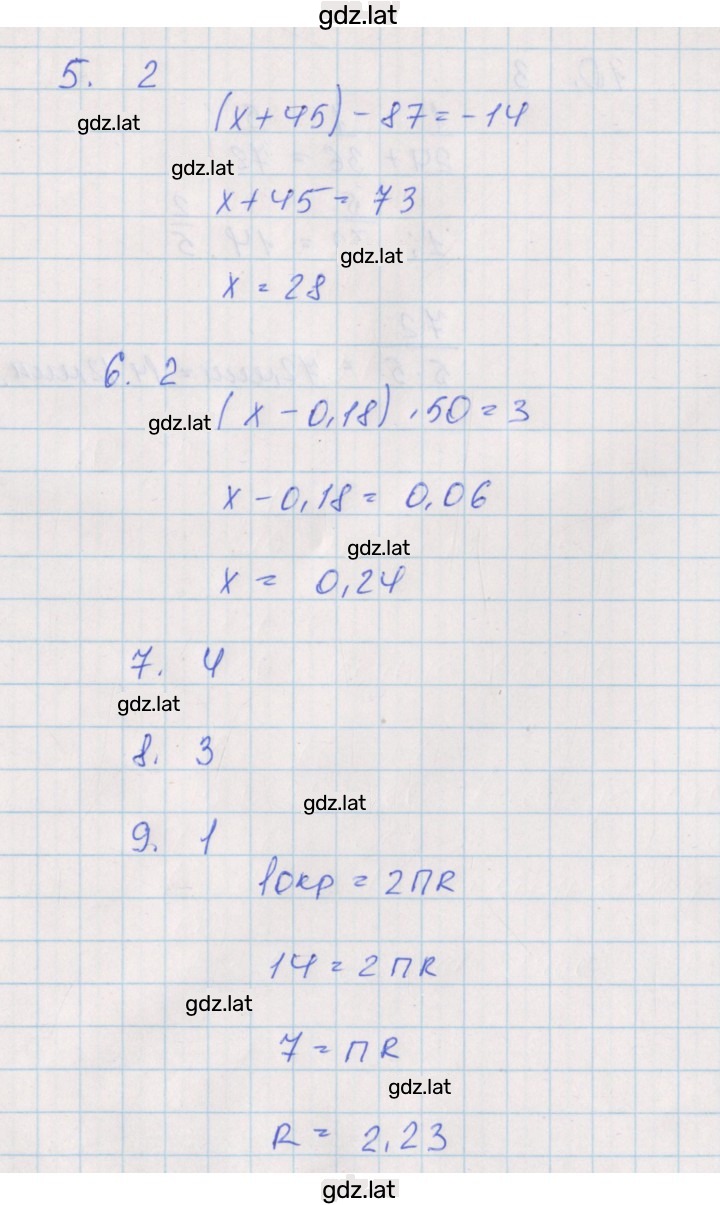 gdz.lat
5. 2
gdz.lat
(x + 45) - 87 = - 14
gdz.lat
x + 45 = 73
gdz.lat
x = 28
6. 2
gdz.lat
(x - 0,18) · 50 = 3
x - 0,18 = 0,06
gdz.lat
x = 0,24
7. 4
gdz.lat
8. 3
gdz.lat
9. 1
lокр = 2ПR
14 = 2ПR
gdz.lat
7 = ПR
gdz.lat
R = 2,23
gdz.lat